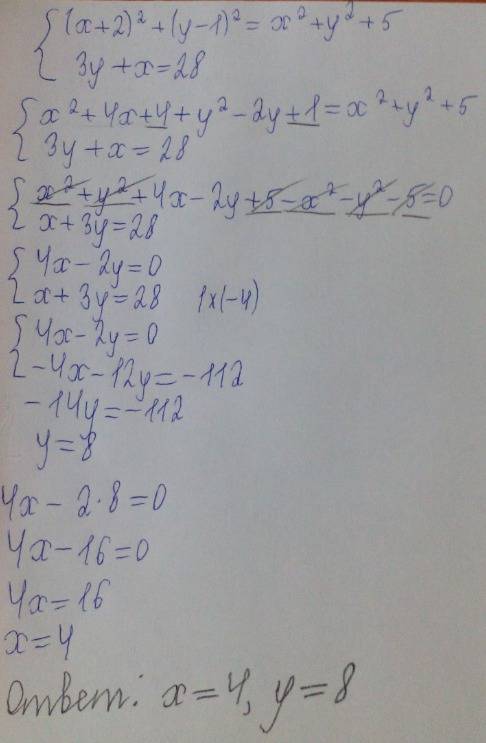 (x+2)²+(y-1)²=x²+y²+5
3y+x=28
x²+4x+4+y²-2y+1=x²+y²+5
3y+x=28
x²+y²+4x-2y+5-x²-y²-5=0
x+3y=28
4x-2y=0
x+3y=28 |x(-4)
4x-2y=0
-4x-12y=-112
-14y=-112
y=8
4x-2·8=0
4x-16=0
4x=16
x=4
Ответ: x=4, y=8